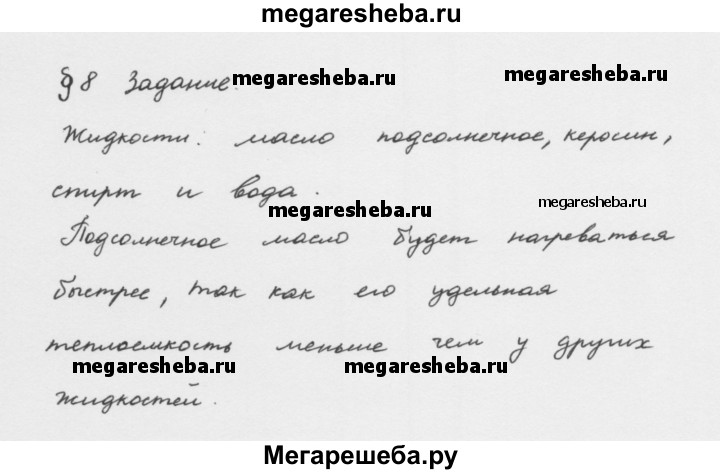 megaresheba.ru
§ 8 Задание.
megaresheba.ru
megaresheba.ru
Жидкости: масло подсолнечное, керосин,
спирт и вода.
megaresheba.ru
megaresheba.ru
Подсолнечное масло будет нагреваться
быстрее, так как его удельная
теплоемкость меньше чем у других
megaresheba.ru
megaresheba.ru
жидкостей.
Мегарешеба.ру